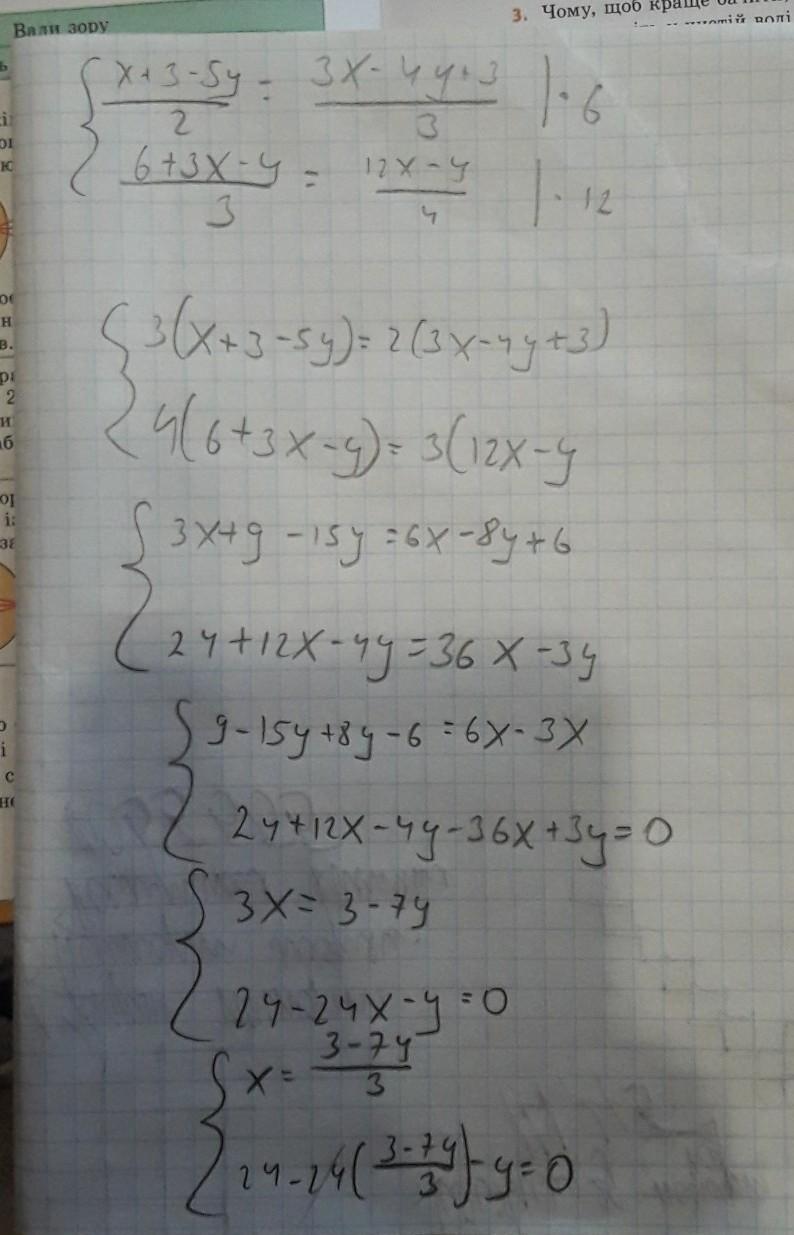 Вади зору
3. Чому, щоб краще
{ (x+3-5y)/2 = (3x-4y+3)/3 | · 6
(6+3x-y)/3 = (12x-y)/4 | · 12
{ 3(x+3-5y)=2(3x-4y+3)
4(6+3x-y)=3(12x-y
{ 3x+9-15y=6x-8y+6
24+12x-4y=36x-3y
{ 9-15y+8y-6=6x-3x
24+12x-4y-36x+3y=0
{ 3x=3-7y
24-24x-y=0
{ x=(3-7y)/3
24-24((3-7y)/3)-y=0